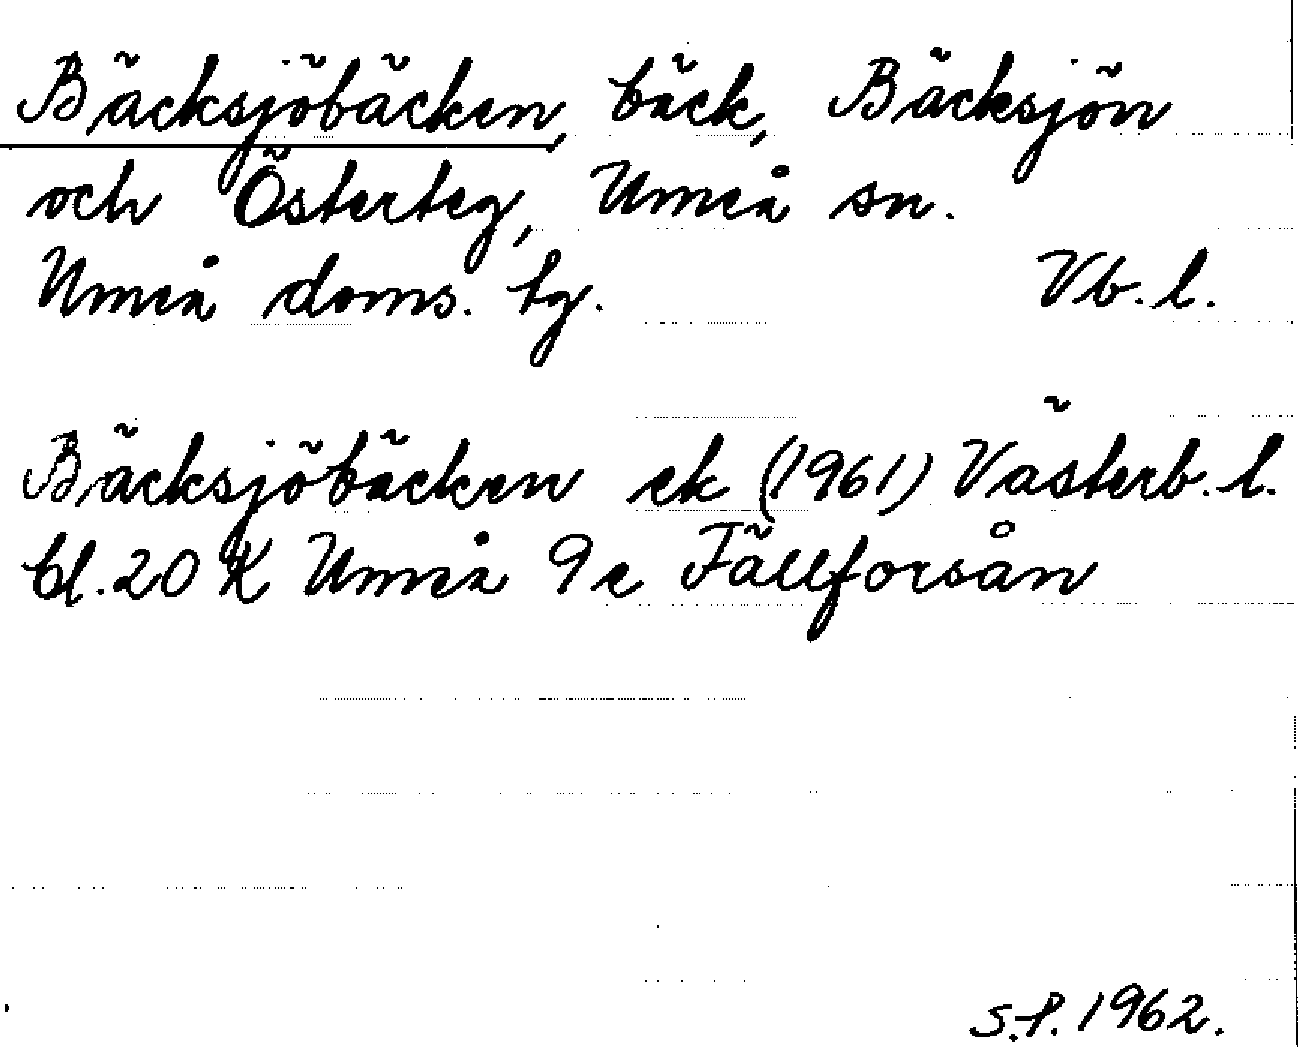 Bäcksjöbäcken, bäck, Bäcksjön
och Österteg, Umeå sn.
Umeå doms. tg. Vb. l.
Bäcksjöbäcken ek (1961) Västerb. l.
bl. 20 K Umeå 9 e Fällforsån
S.P. 1962.